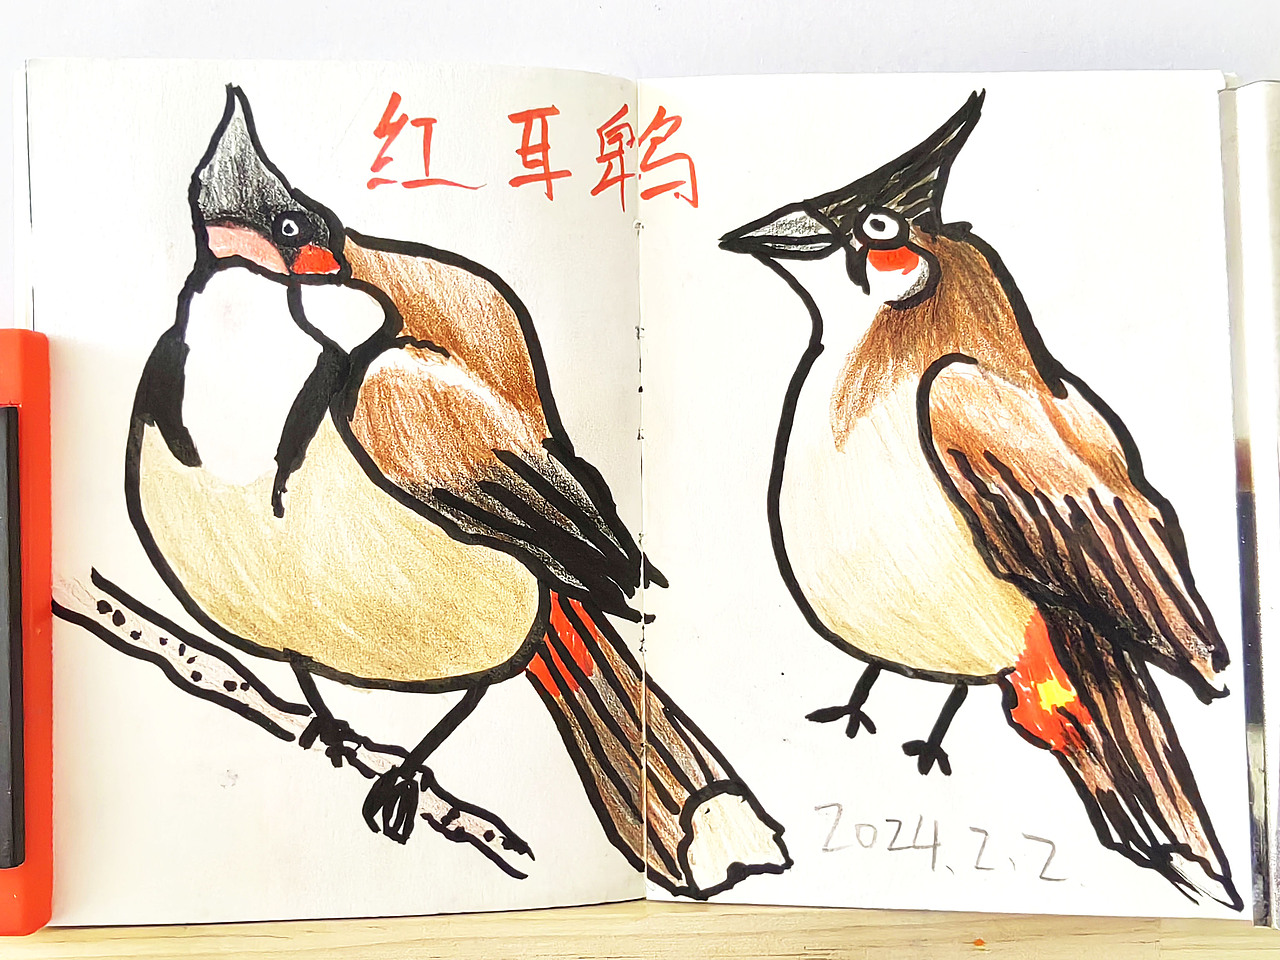 红耳鹎
2024.2.2